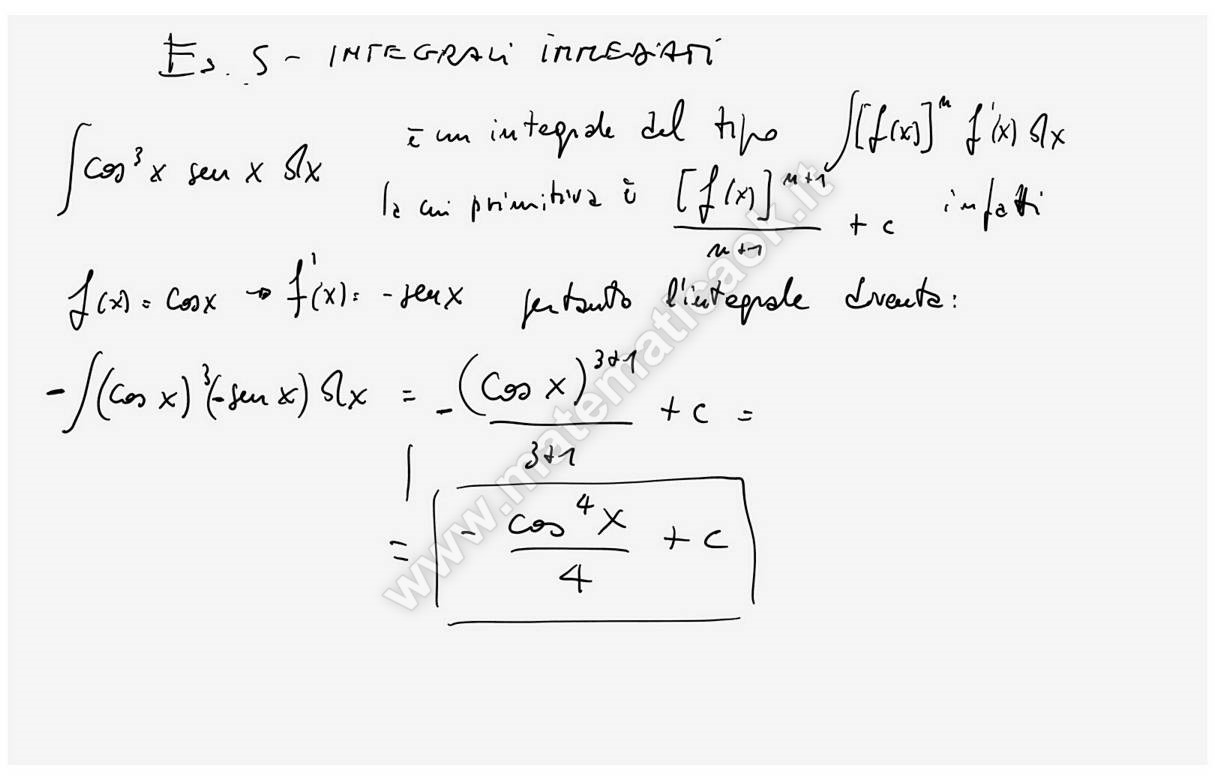 Es. 5 - INTEGRALI IMMEDIATI
∫cos³x sen x dx è un integrale del tipo ∫[f(x)]ⁿ f'(x) dx
la cui primitiva è [f(x)]ⁿ⁺¹/(n+1) + c infatti
f(x) = cosx → f'(x) = -senx pertanto l'integrale diventa:
-∫(cos x)³(-sen x) dx = -(cos x)³⁺¹/(3+1) + c =
= -cos⁴x/4 + c
www.matematicaok.it